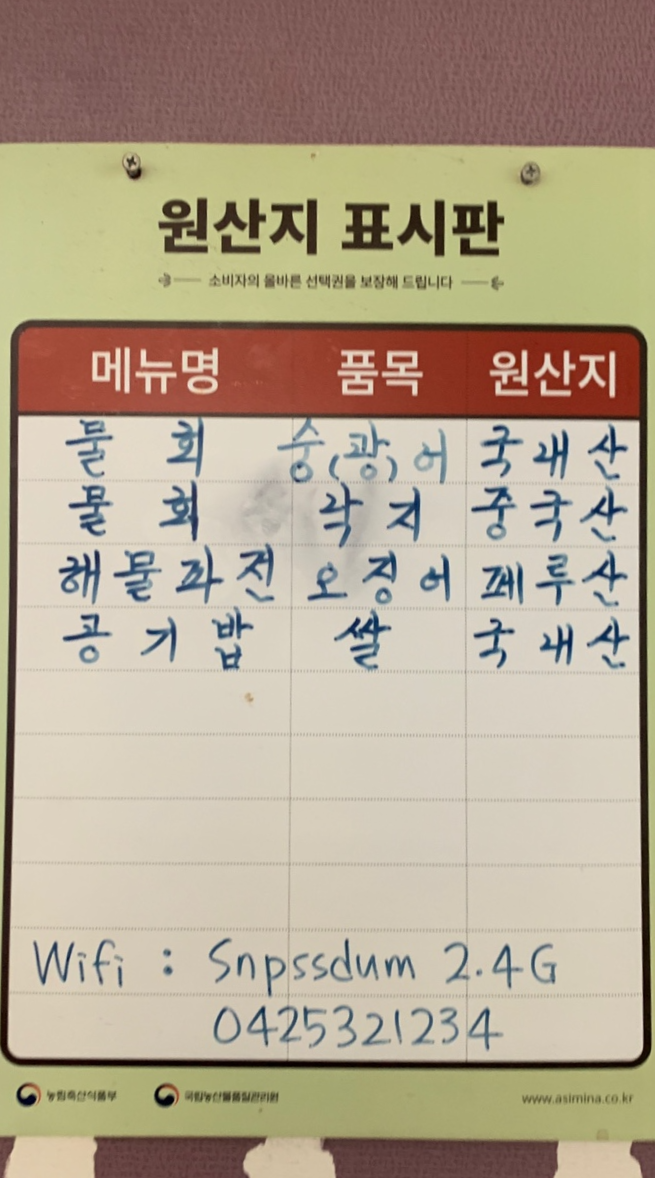 원산지 표시판
소비자의 올바른 선택권을 보장해 드립니다
메뉴명 품목 원산지
물회 숭(광)어 국내산
물회 각지 중국산
해물파전 오징어 페루산
공기밥 쌀 국내산
Wifi : Snpssdum 2.4G
0425321234
농림축산식품부 국립농산물품질관리원 www.asimina.co.kr